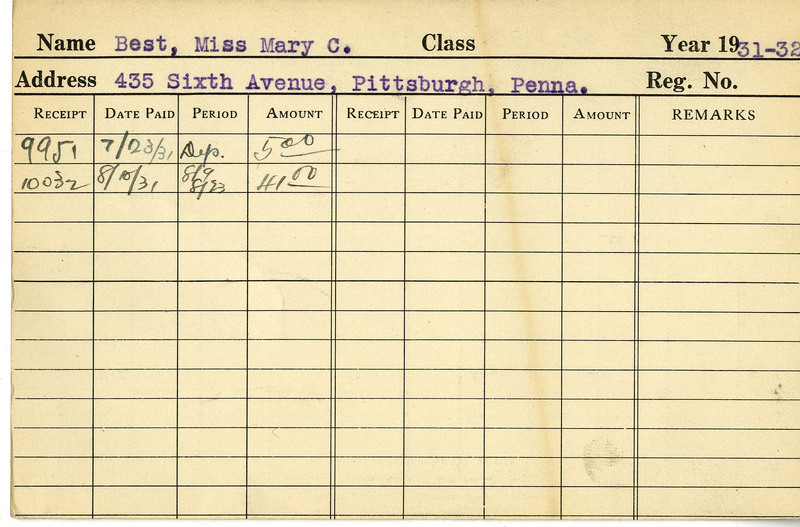 Name Best, Miss Mary C. Class Year 1931-32
Address 435 Sixth Avenue, Pittsburgh, Penna. Reg. No.
RECEIPT DATE PAID PERIOD AMOUNT RECEIPT DATE PAID PERIOD AMOUNT REMARKS
9951 7/23/31 Dep. 5 00
10032 8/10/31 8/9 8/23 41 00